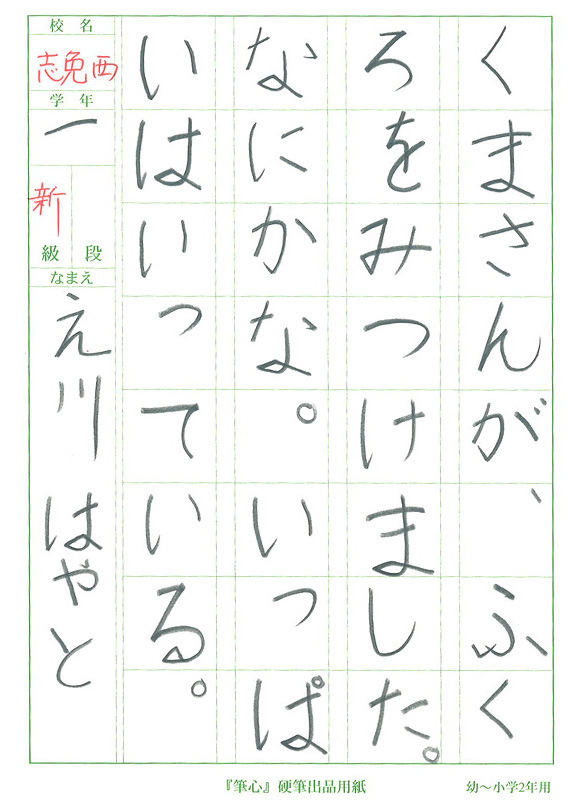 くまさんが、ふく
ろをみつけました。
なにかな。いっぱ
いはいっている。
校名
志免西
学年
一
新
級段
なまえ
え川はやと
『筆心』硬筆出品用紙
幼〜小学2年用